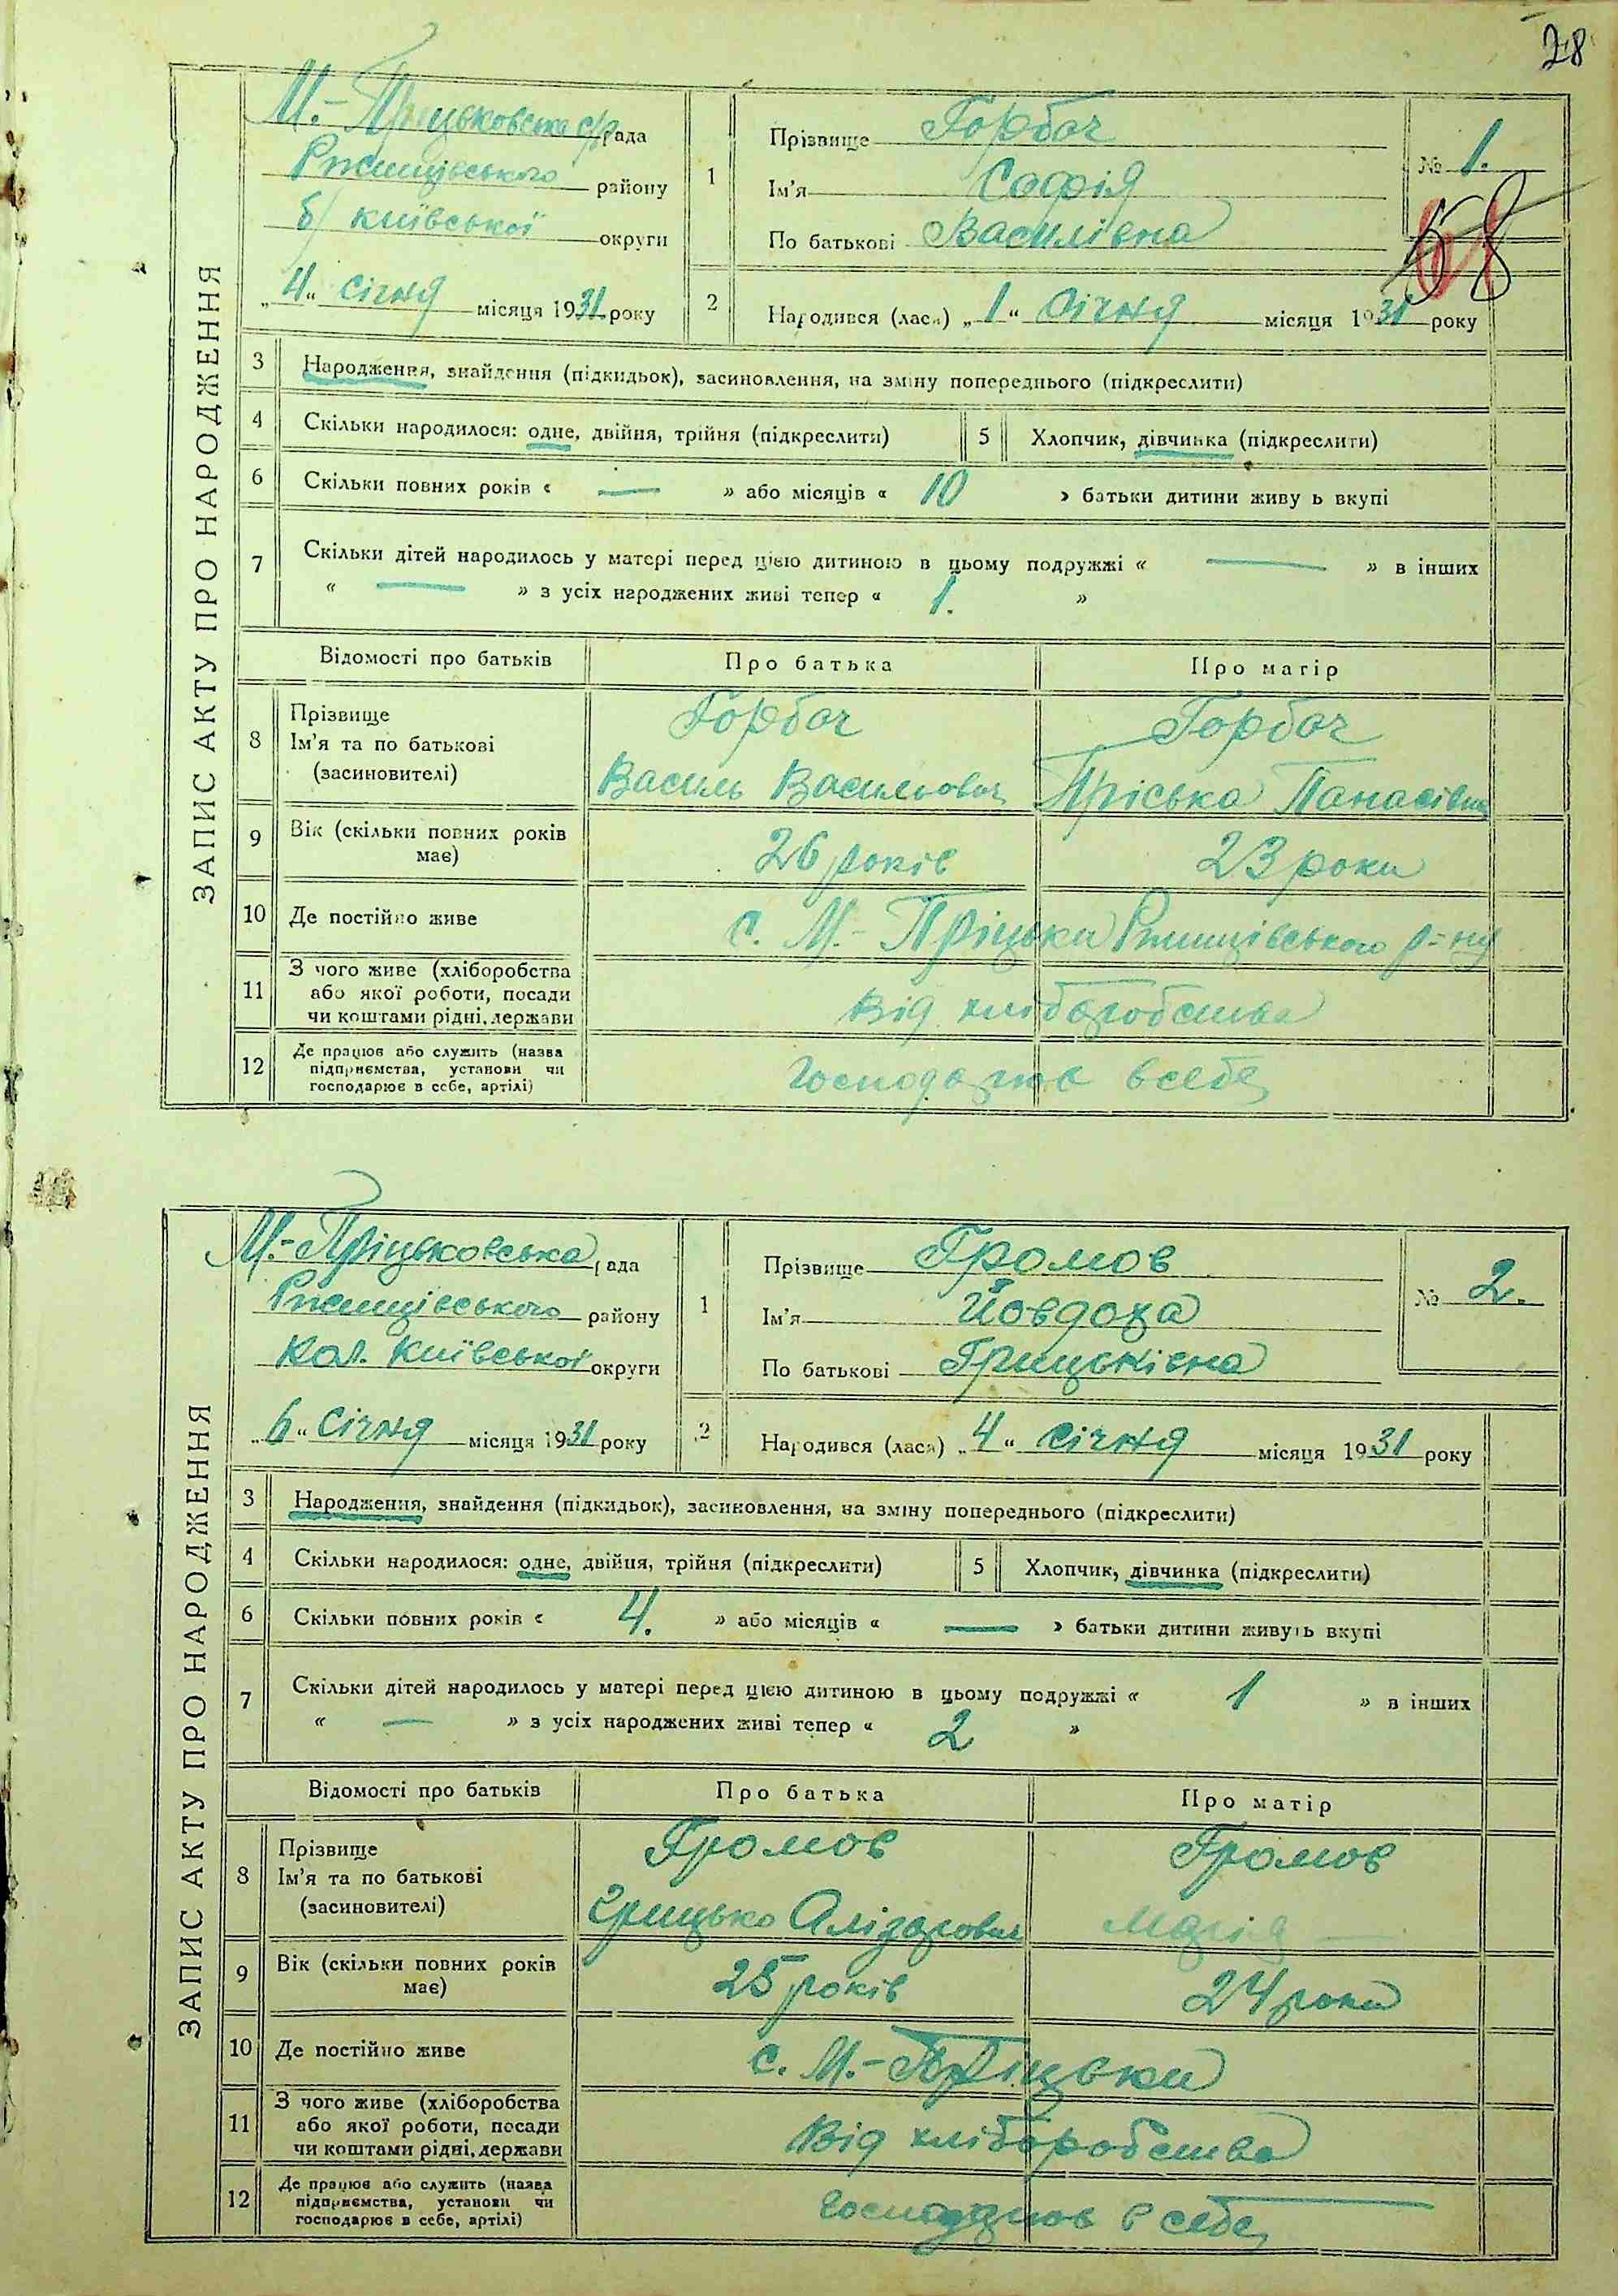 28
ЗАПИС АКТУ ПРО НАРОДЖЕННЯ
М.-Пріцьковська с/рада
Ржищівського району
б/ Київської округи
„4“ січня місяця 1931 року
1
Прізвище Горбач
Ім'я Софія
По батькові Василівна
№ 1.
58
2
Народився (лася) „1“ Січня місяця 1931 року
3 Народження, знайдення (підкидьок), засиновлення, на зміну попереднього (підкреслити)
4 Скільки народилося: одне, двійня, трійня (підкреслити) 5 Хлопчик, дівчинка (підкреслити)
6 Скільки повних років « — » або місяців « 10 » батьки дитини живу ь вкупі
7 Скільки дітей народилось у матері перед цією дитиною в цьому подружжі « — » в інших
« — » з усіх народжених живі тепер « 1. »
Відомості про батьків Про батька Про матір
8 Прізвище Горбач Горбач
Ім'я та по батькові
(засиновителі) Василь Васильович Пріська Панасівна
9 Вік (скільки повних років має) 26 років 23 роки
10 Де постійно живе с. М.-Пріцьки Ржищівського р-ну
11 З чого живе (хліборобства
або якої роботи, посади
чи коштами рідні, держави Від хліборобства
12 Де працює або служить (назва
підприємства, установи чи
господарює в себе, артілі) Господарює в себе
ЗАПИС АКТУ ПРО НАРОДЖЕННЯ
М.-Пріцьковська рада
Ржищівського району
Кол. Київської округи
„6“ Січня місяця 1931 року
1
Прізвище Громов
Ім'я Йовдоха
По батькові Грицьківна
№ 2.
2
Народився (лася) „4“ Січня місяця 1931 року
3 Народження, знайдення (підкидьок), засиновлення, на зміну попереднього (підкреслити)
4 Скільки народилося: одне, двійня, трійня (підкреслити) 5 Хлопчик, дівчинка (підкреслити)
6 Скільки повних років « 4. » або місяців « — » батьки дитини живуть вкупі
7 Скільки дітей народилось у матері перед цією дитиною в цьому подружжі « 1 » в інших
« — » з усіх народжених живі тепер « 2 »
Відомості про батьків Про батька Про матір
8 Прізвище Громов Громов
Ім'я та по батькові
(засиновителі) Грицько Алізарович Марія —
9 Вік (скільки повних років має) 25 років 24 роки
10 Де постійно живе с. М.-Пріцьки
11 З чого живе (хліборобства
або якої роботи, посади
чи коштами рідні, держави Від хліборобства
12 Де працює або служить (назва
підприємства, установи чи
господарює в себе, артілі) Господарює в себе